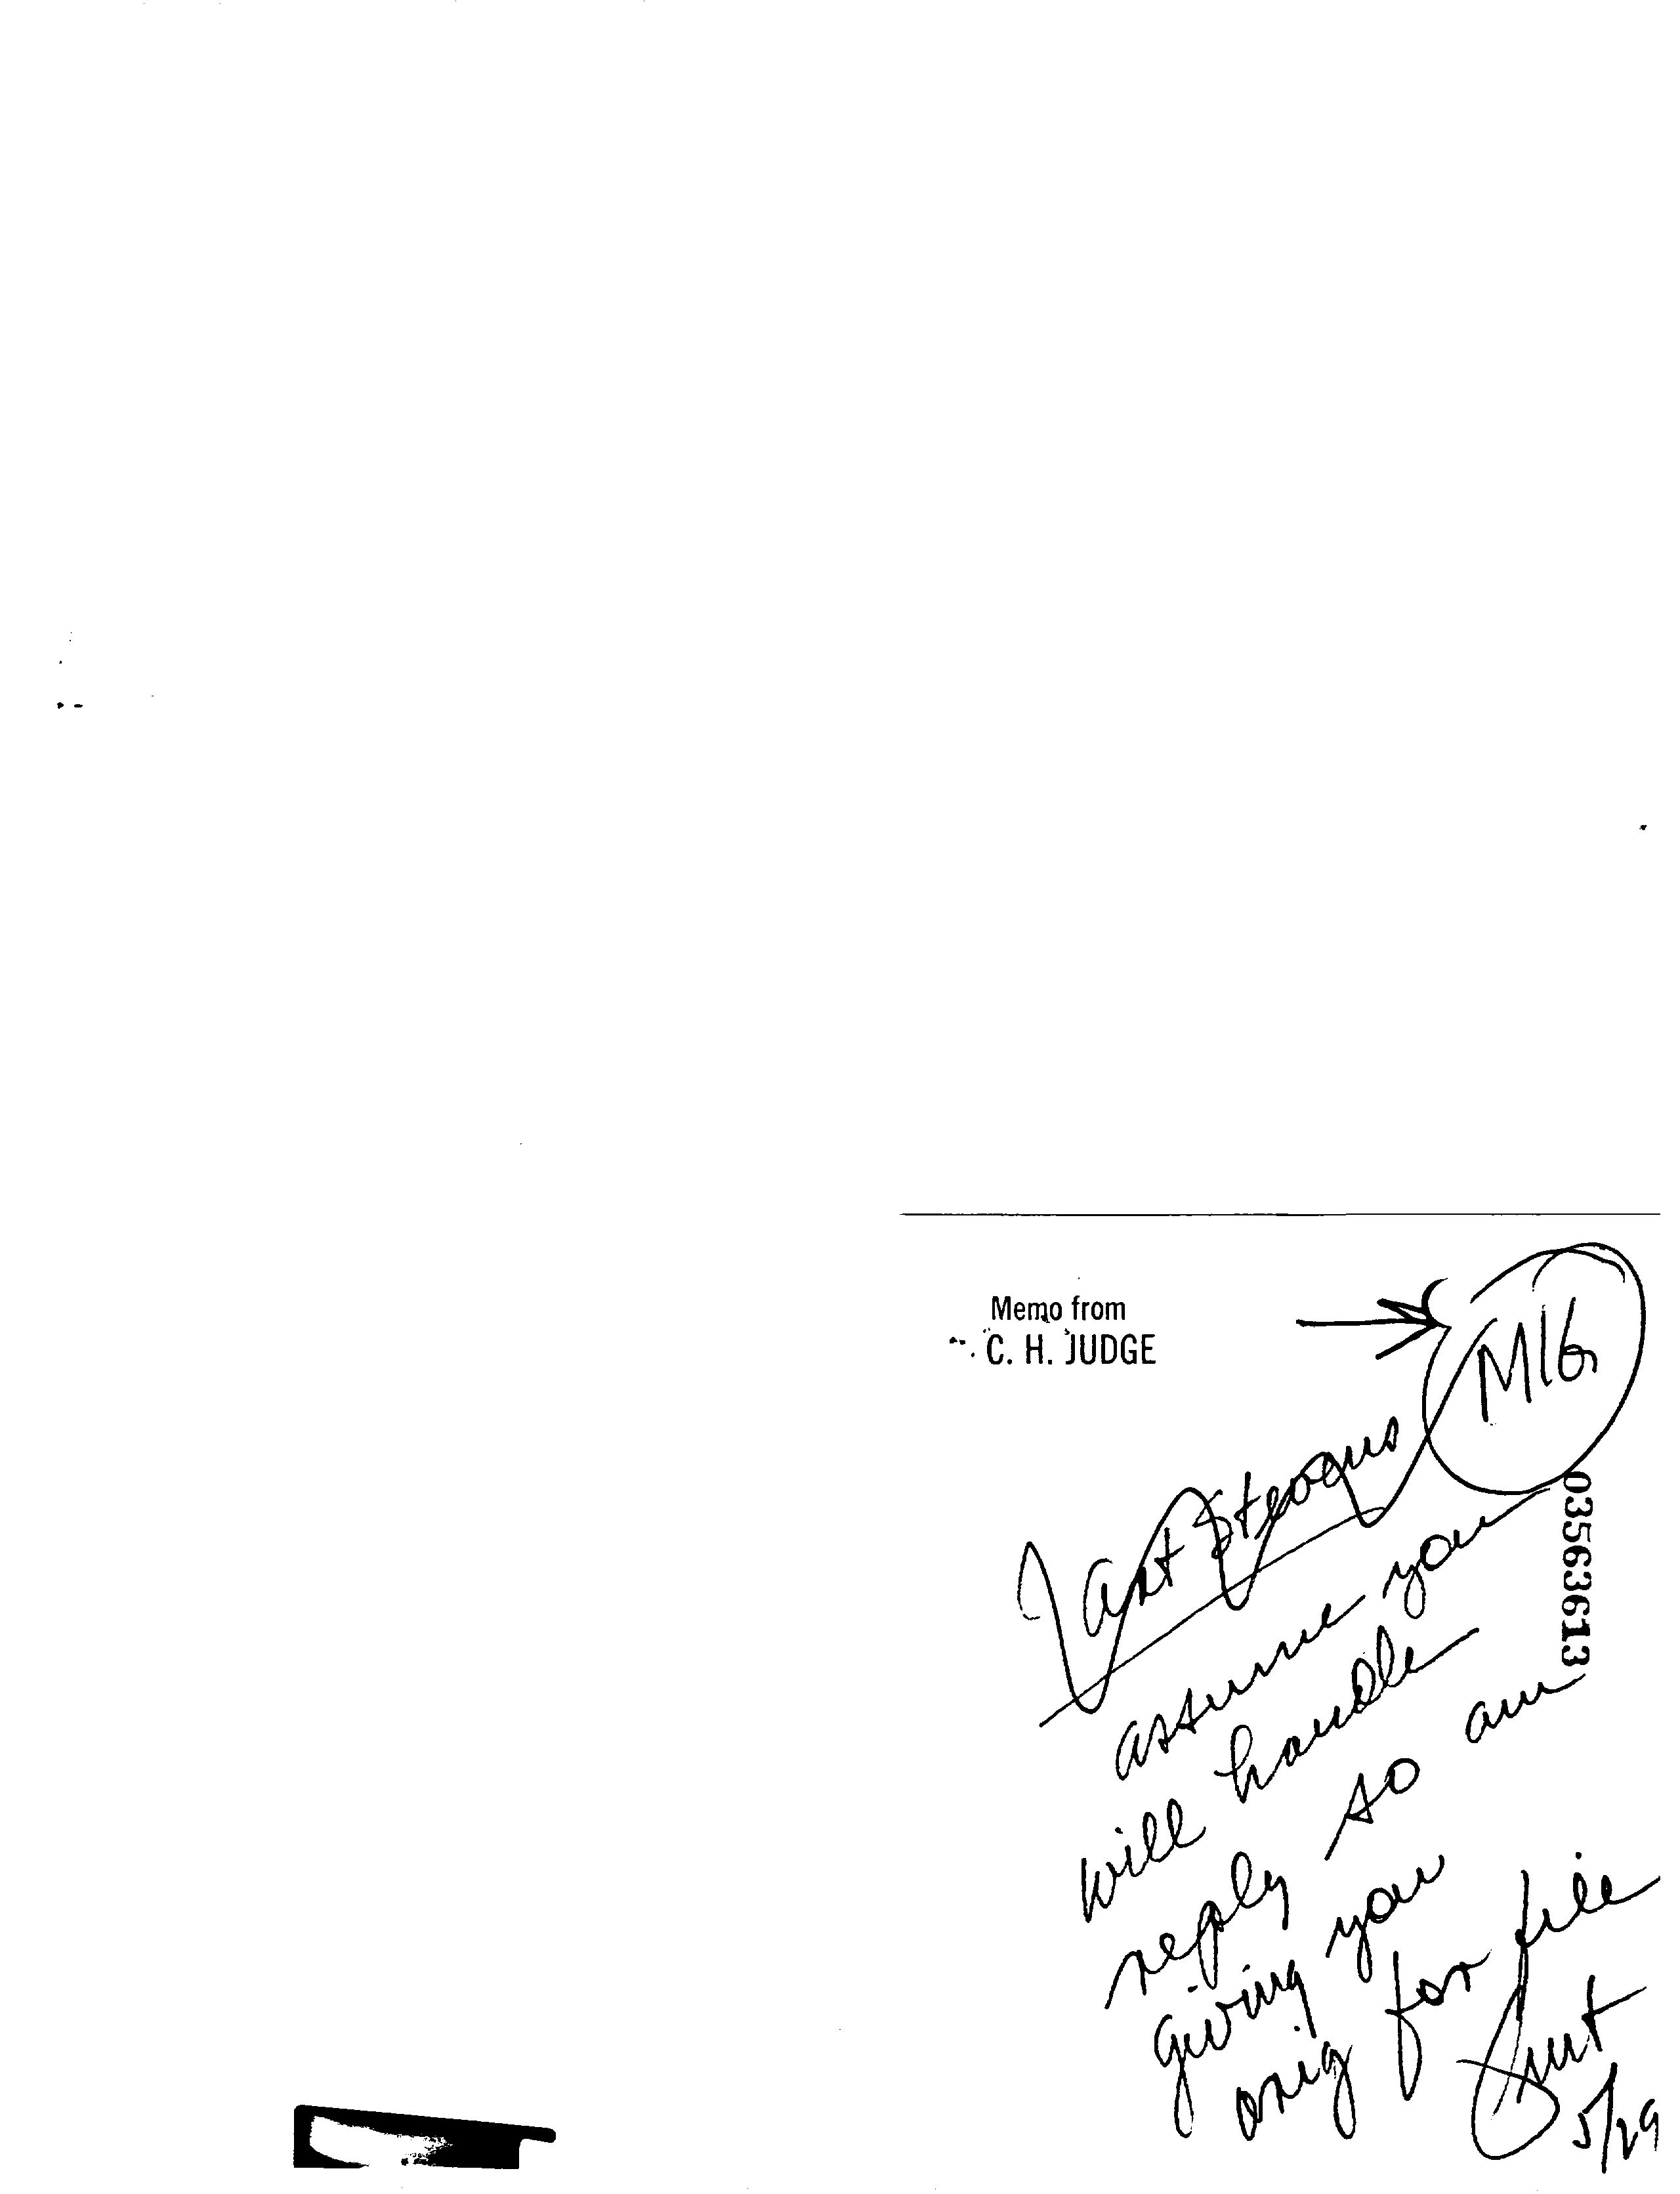 Memo from
C. H. JUDGE
M16
Art Stevens
assume you
will handle
reply so am
giving you
orig for file
Curt
5/29
03563613